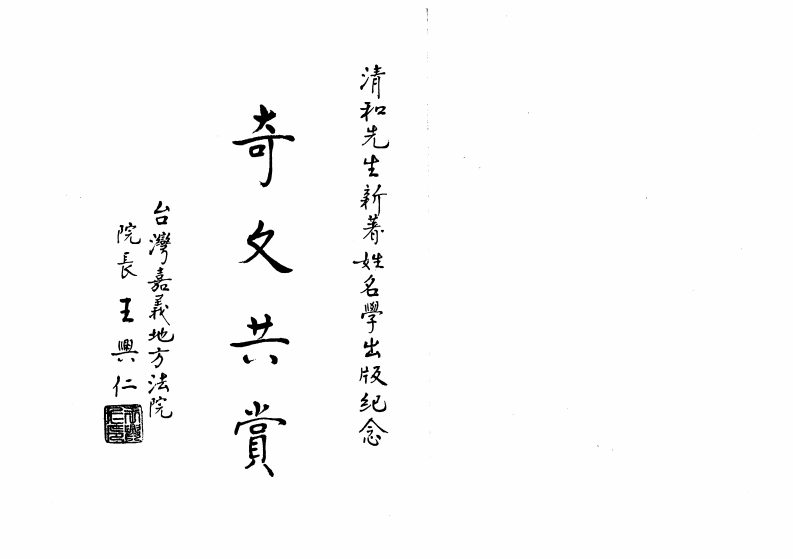 清和先生新著姓名學出版紀念
奇文共賞
台灣嘉義地方法院
院長王興仁